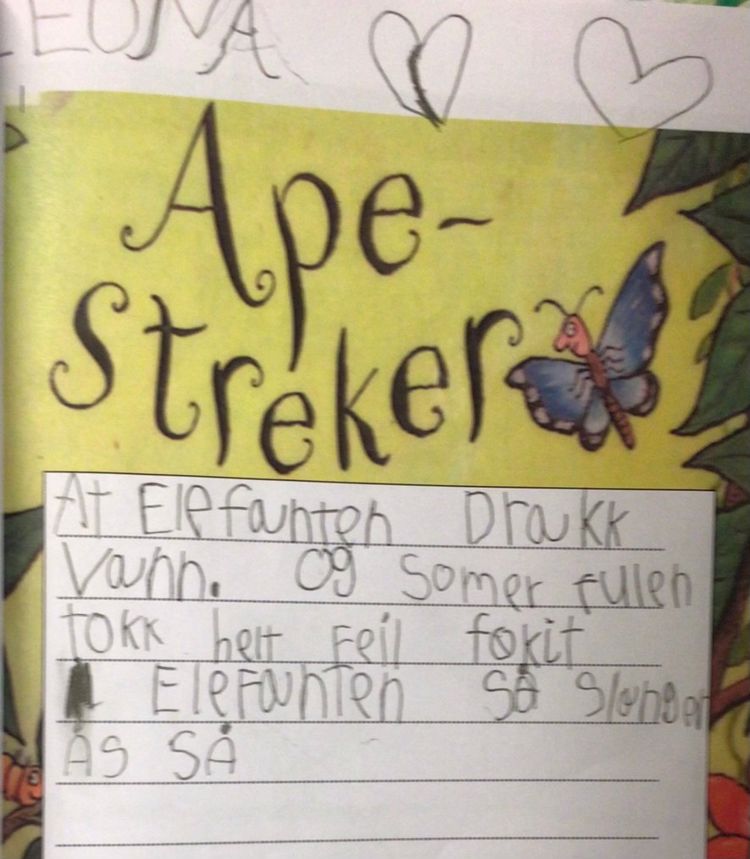 LEONA
Ape-
Streker
At Elefanten Drakk
Vann. Og Somer fulen
tokk helt Feil fokit
Elefanten Så Slanger
ÅS SÅ